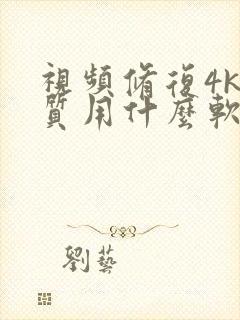 視頻修復4K
質用什麼軟
劉藝